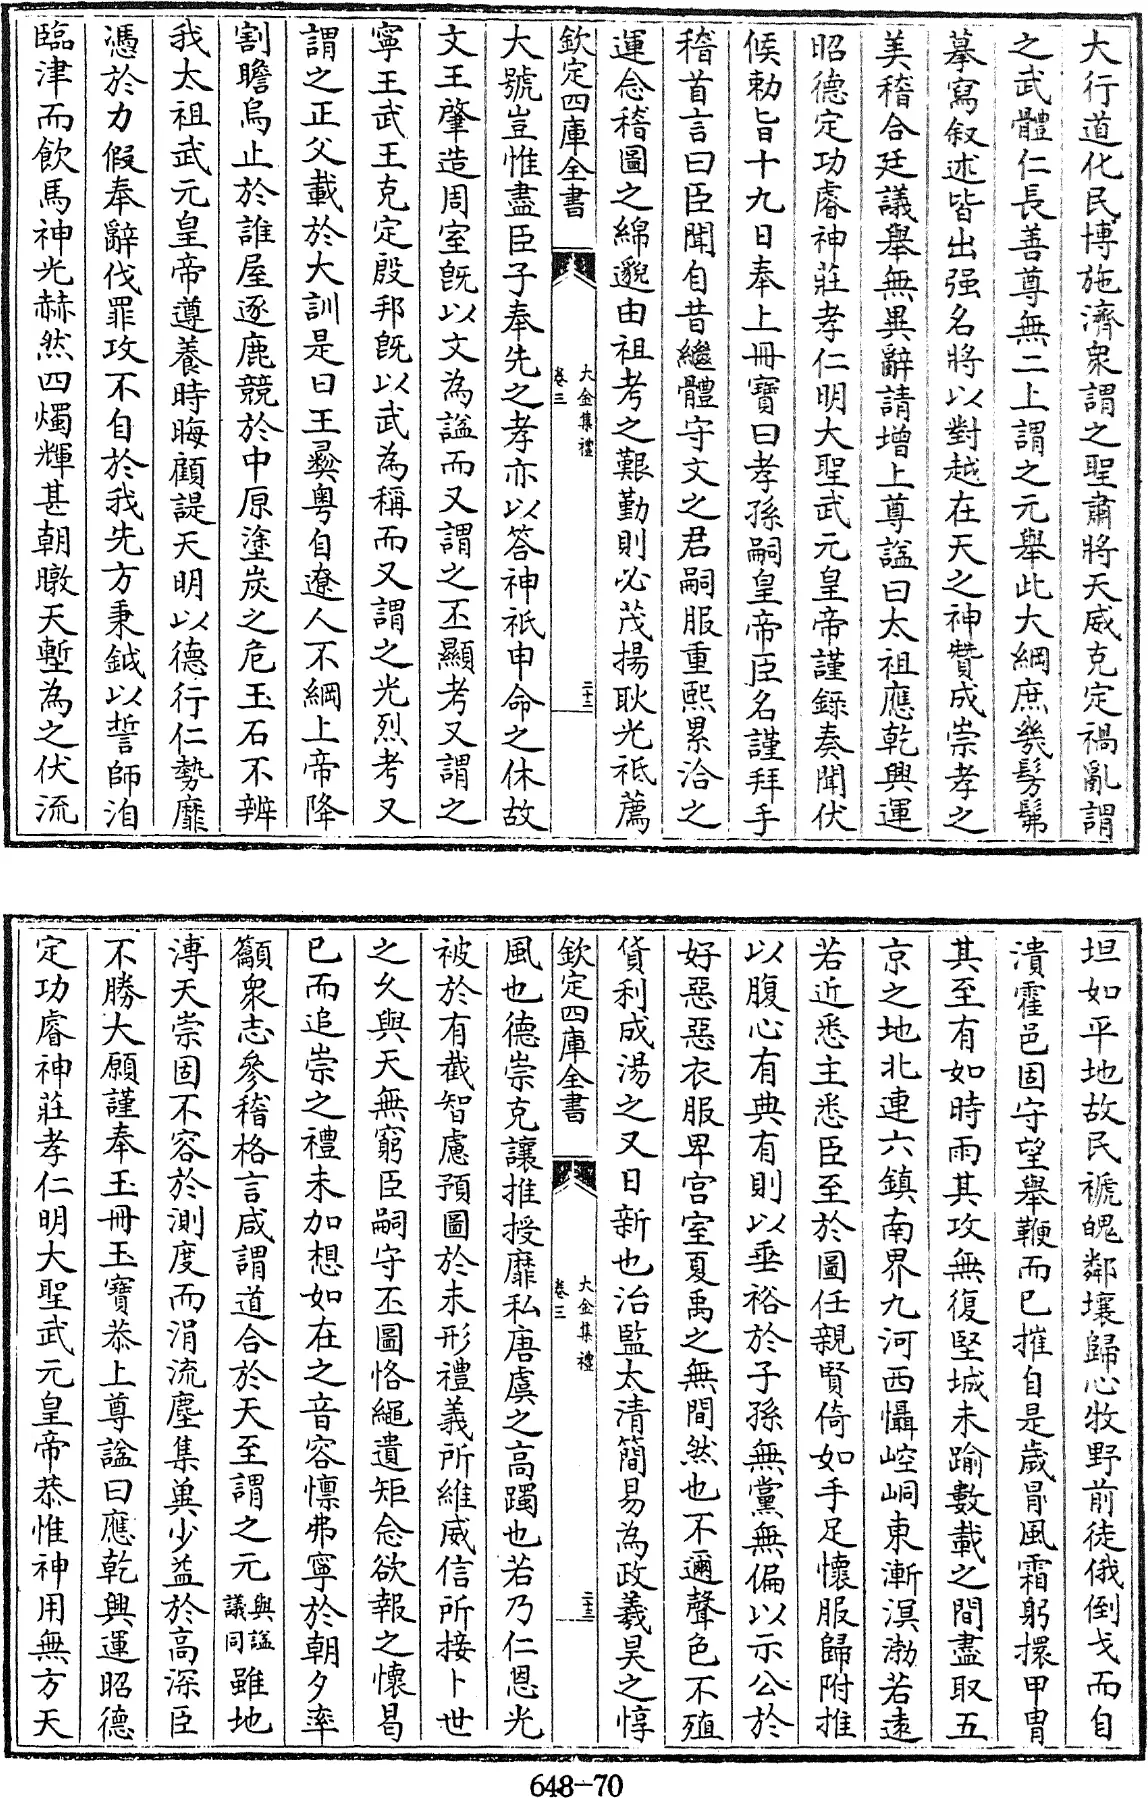 大行道化民博施濟衆謂之聖肅將天威克定禍亂謂
之武體仁長善尊無二上謂之元舉此大綱庶幾髣髴
摹寫叙述皆出强名將以對越在天之神贊成崇孝之
美稽合廷議舉無異辭請增上尊諡曰太祖應乾興運
昭德定功睿神莊孝仁明大聖武元皇帝謹錄奏聞伏
候勅旨十九日奉上冊寶曰孝孫嗣皇帝臣名謹拜手
稽首言曰臣聞自昔繼體守文之君嗣服重熙累洽之
運念稽圖之綿邈由祖考之艱勤則必茂揚耿光祗薦
欽定四庫全書
大金集禮
卷三
二十二
大號豈惟盡臣子奉先之孝亦以答神祇申命之休故
文王肇造周室旣以文為諡而又謂之丕顯考又謂之
寧王武王克定殷邦旣以武為稱而又謂之光烈考又
謂之正父載於大訓是曰王彛粤自遼人不綱上帝降
割瞻烏止於誰屋逐鹿競於中原塗炭之危玉石不辨
我太祖武元皇帝遵養時晦顧諟天明以德行仁勢靡
憑於力假奉辭伐罪攻不自於我先方秉鉞以誓師洎
臨津而飲馬神光赫然四燭輝甚朝暾天塹為之伏流
坦如平地故民褫魄鄰壤歸心牧野前徒俄倒戈而自
潰霍邑固守望舉鞭而已摧自是歲冐風霜躬擐甲胄
其至有如時雨其攻無復堅城未踰數載之間盡取五
京之地北連六鎮南界九河西懾崆峒東漸溟渤若遠
若近悉主悉臣至於圖任親賢倚如手足懷服歸附推
以腹心有典有則以垂裕於子孫無黨無偏以示公於
好惡惡衣服卑宫室夏禹之無間然也不邇聲色不殖
貨利成湯之又日新也治監太清簡易為政羲昊之惇
欽定四庫全書
大金集禮
卷三
二十三
風也德崇克讓推授靡私唐虞之高躅也若乃仁恩光
被於有截智慮預圖於未形禮義所維威信所接卜世
之久與天無窮臣嗣守丕圖恪繩遺矩念欲報之懷曷
已而追崇之禮未加想如在之音容懍弗寧於朝夕率
籲衆志參稽格言咸謂道合於天至謂之元與諡議同雖地
溥天崇固不容於測度而涓流塵集兾少益於高深臣
不勝大願謹奉玉冊玉寶恭上尊諡曰應乾興運昭德
定功睿神莊孝仁明大聖武元皇帝恭惟神用無方天
648-70